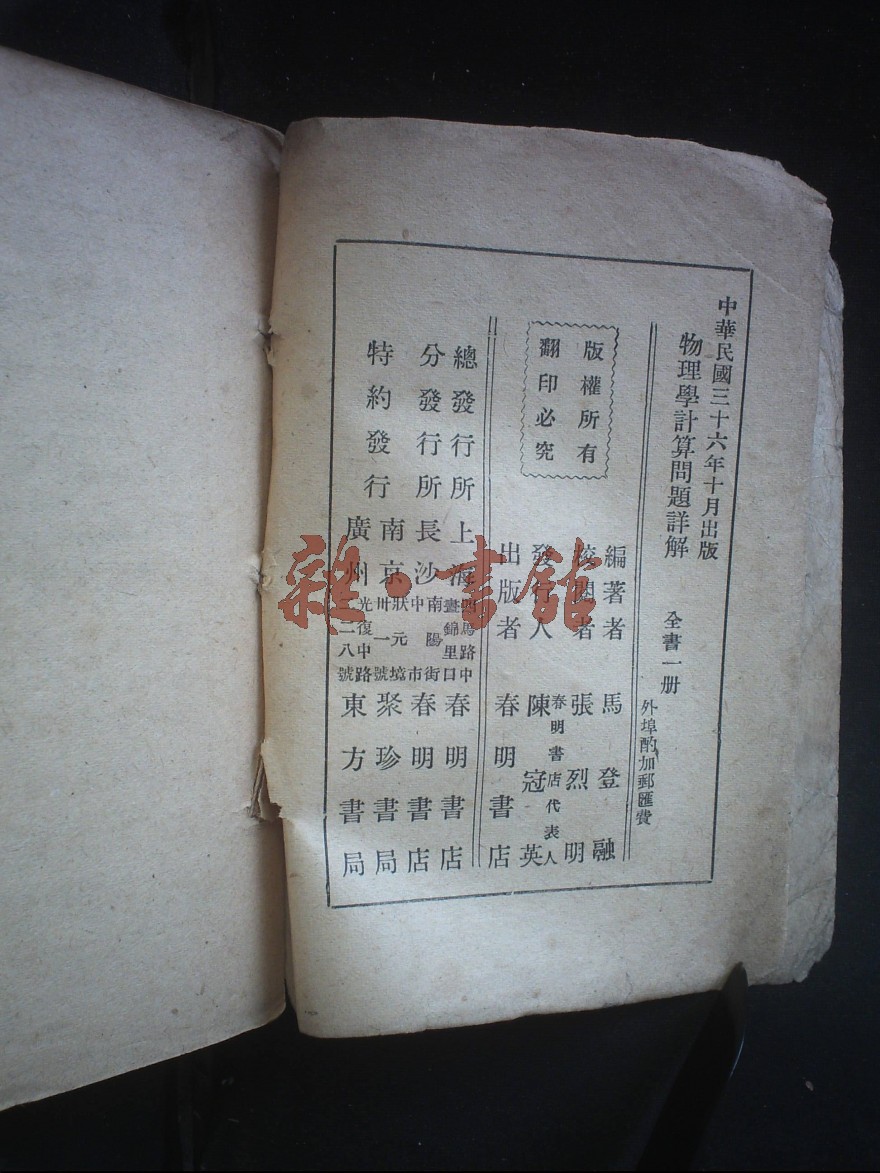 中華民國三十六年十月出版
物理學計算問題詳解
全書一册
外埠酌加郵匯費
版權所有
翻印必究
編著者 馬登融
校閱者 張烈明
發行人 春明書店代表人 陳冠英
出版者 春明書店
總發行所 上海 四馬路中 晝錦里口 春明書店
分發行所 長沙 南陽街 中市 春明書店
特約發行
南京 狀元境 卅一號 聚珍書局
廣州 光復中路 二二八號 東方書局
雜·書館